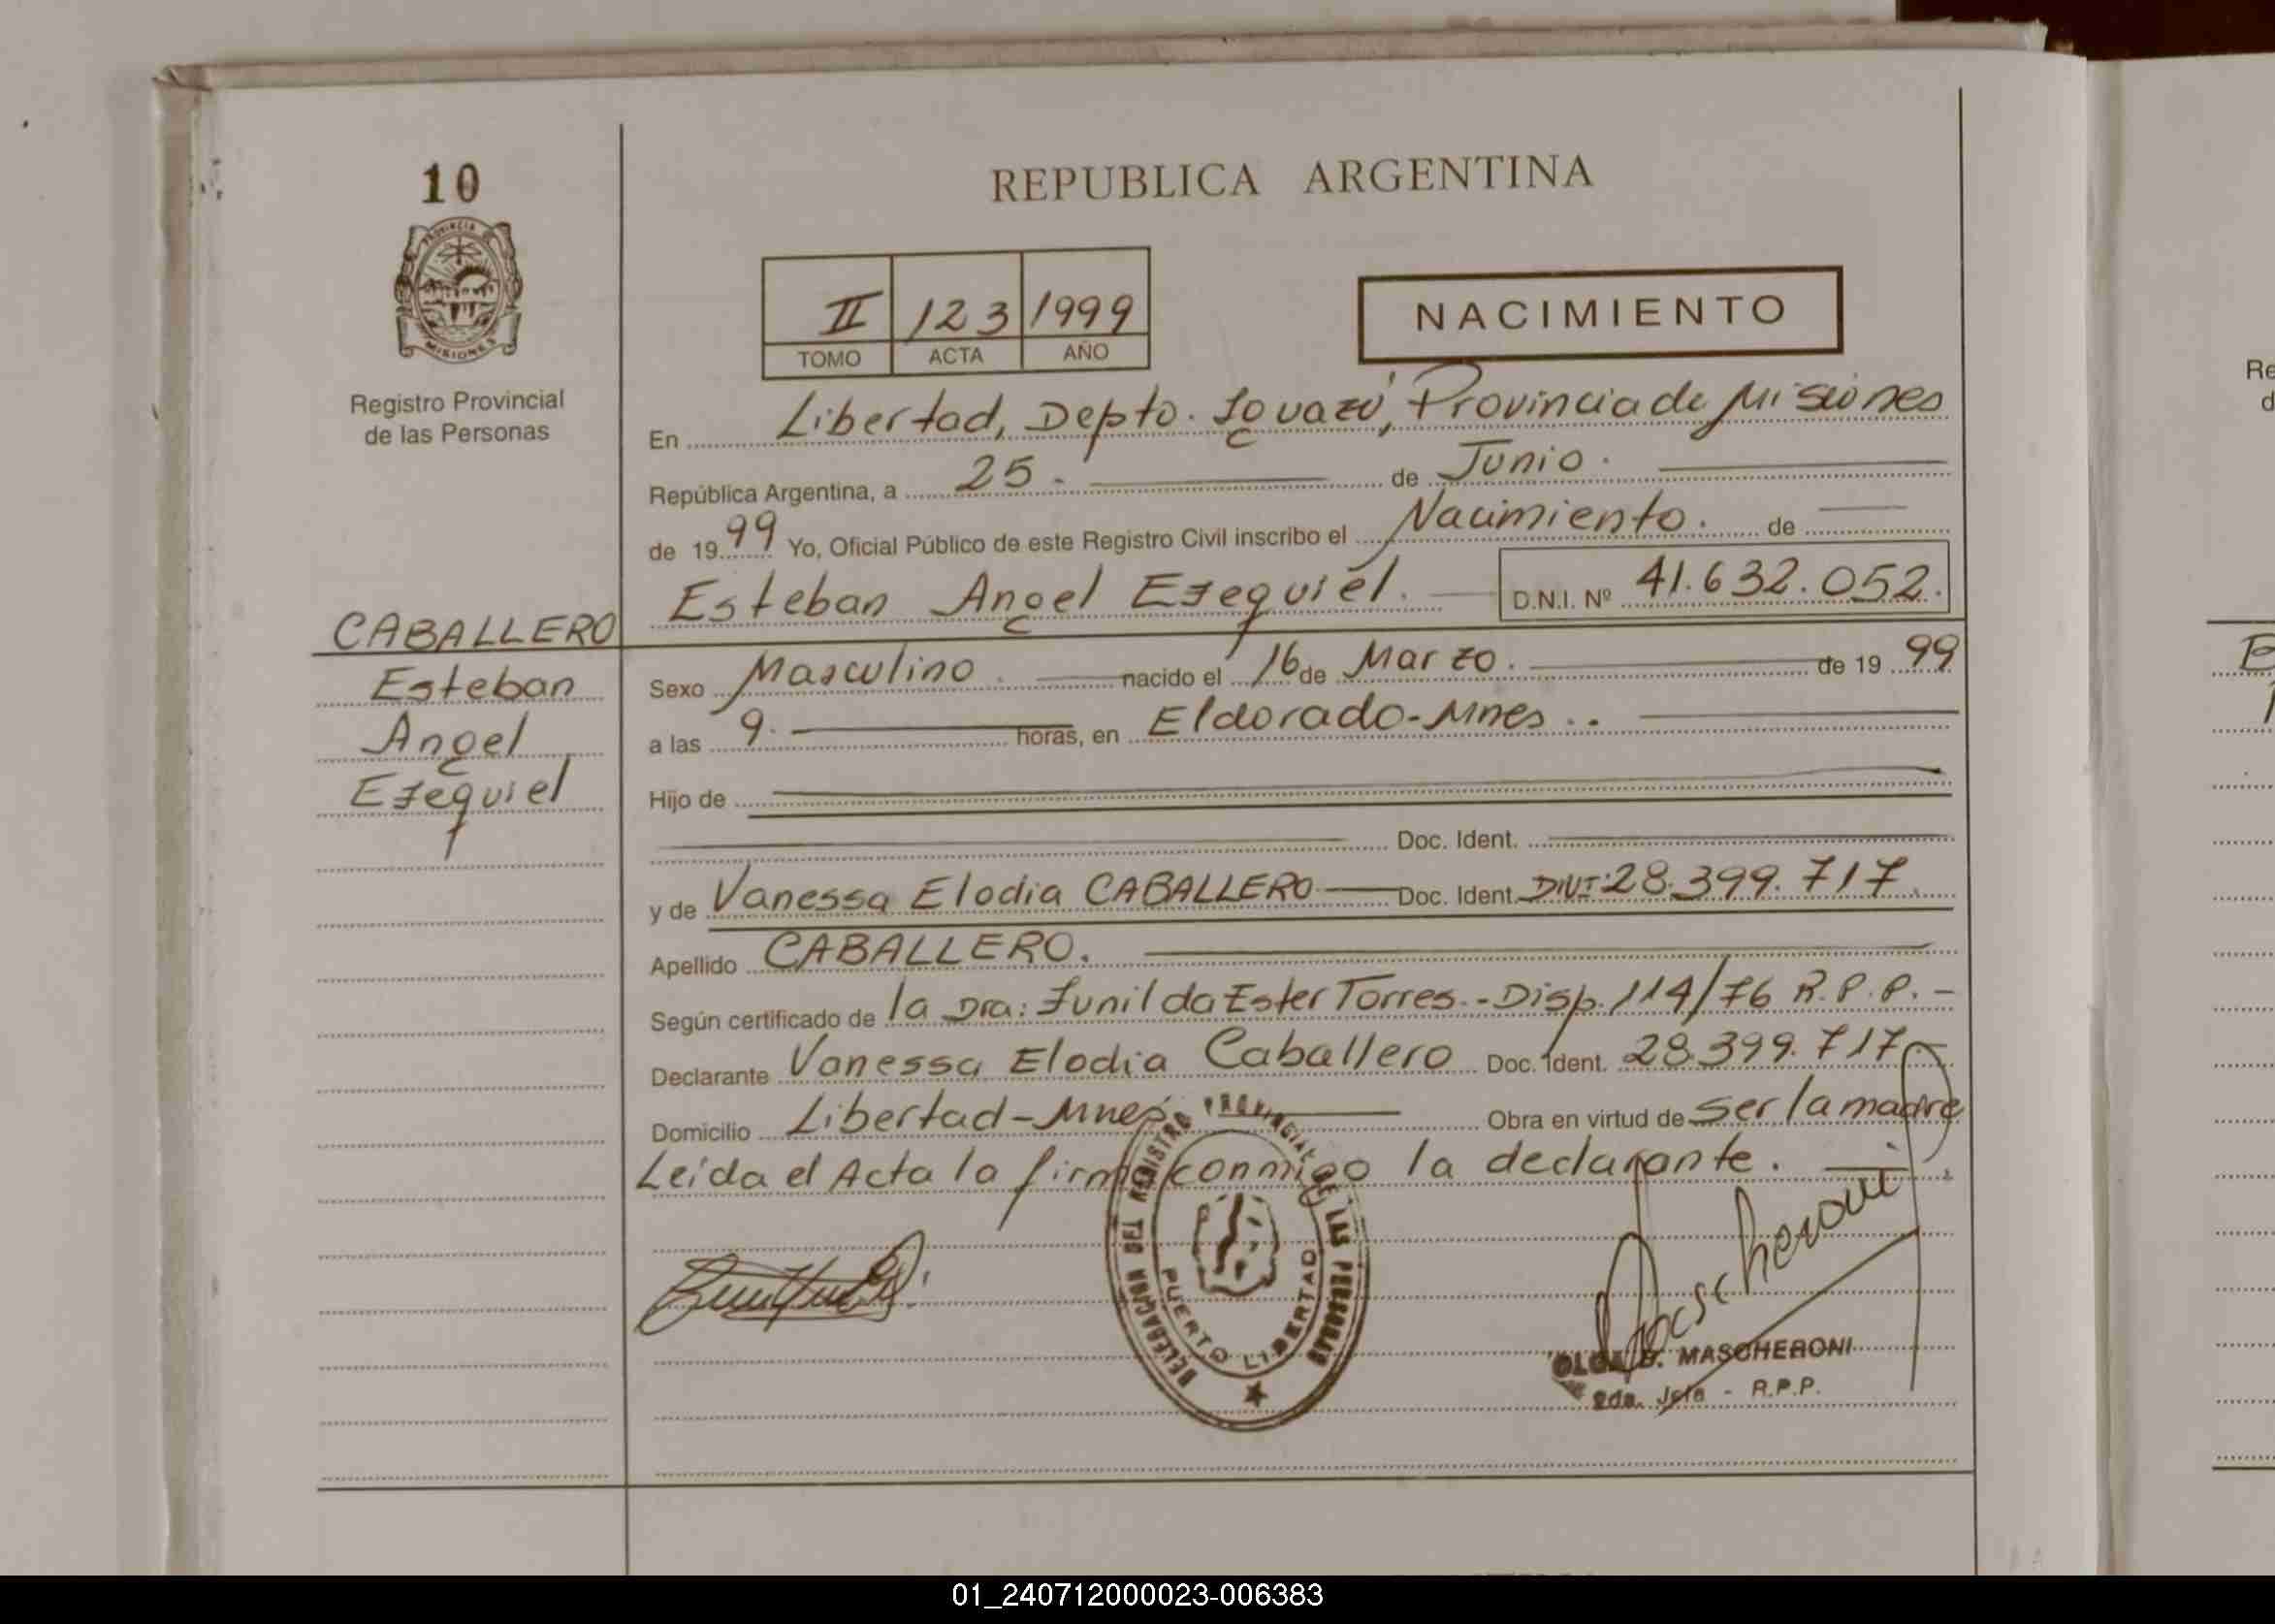 10
PROVINCIA DE
MISIONES
Registro Provincial
de las Personas
REPUBLICA ARGENTINA
II 123 1999
TOMO ACTA AÑO
NACIMIENTO
En Libertad, Depto. Iguazú, Provincia de Misiones
República Argentina, a 25. de Junio.
de 1999 Yo, Oficial Público de este Registro Civil inscribo el Nacimiento. de
Esteban Angel Ezequiel. D.N.I. Nº 41.632.052.
CABALLERO
Esteban
Angel
Ezequiel
Sexo Masculino. nacido el 16 de Marzo. de 1999
a las 9. horas, en Eldorado-Mnes..
Hijo de
Doc. Ident.
y de Vanessa Elodia CABALLERO Doc. Ident. DNI: 28.399.717.
Apellido CABALLERO.
Según certificado de la Dra: Zunilda Ester Torres.-Disp. 114/76 R.P.P.-
Declarante Vanessa Elodia Caballero Doc. Ident. 28.399.717-
Domicilio Libertad-Mnes. Obra en virtud de ser la madre
Leída el Acta la firma conmigo la declarante.
DELEGACION DEL REGISTRO PROVINCIAL DE LAS PERSONAS
PUERTO LIBERTAD
Mascheroni
OLGA B. MASCHERONI
2da. Jefa - R.P.P.
Re
d
01_240712000023-006383